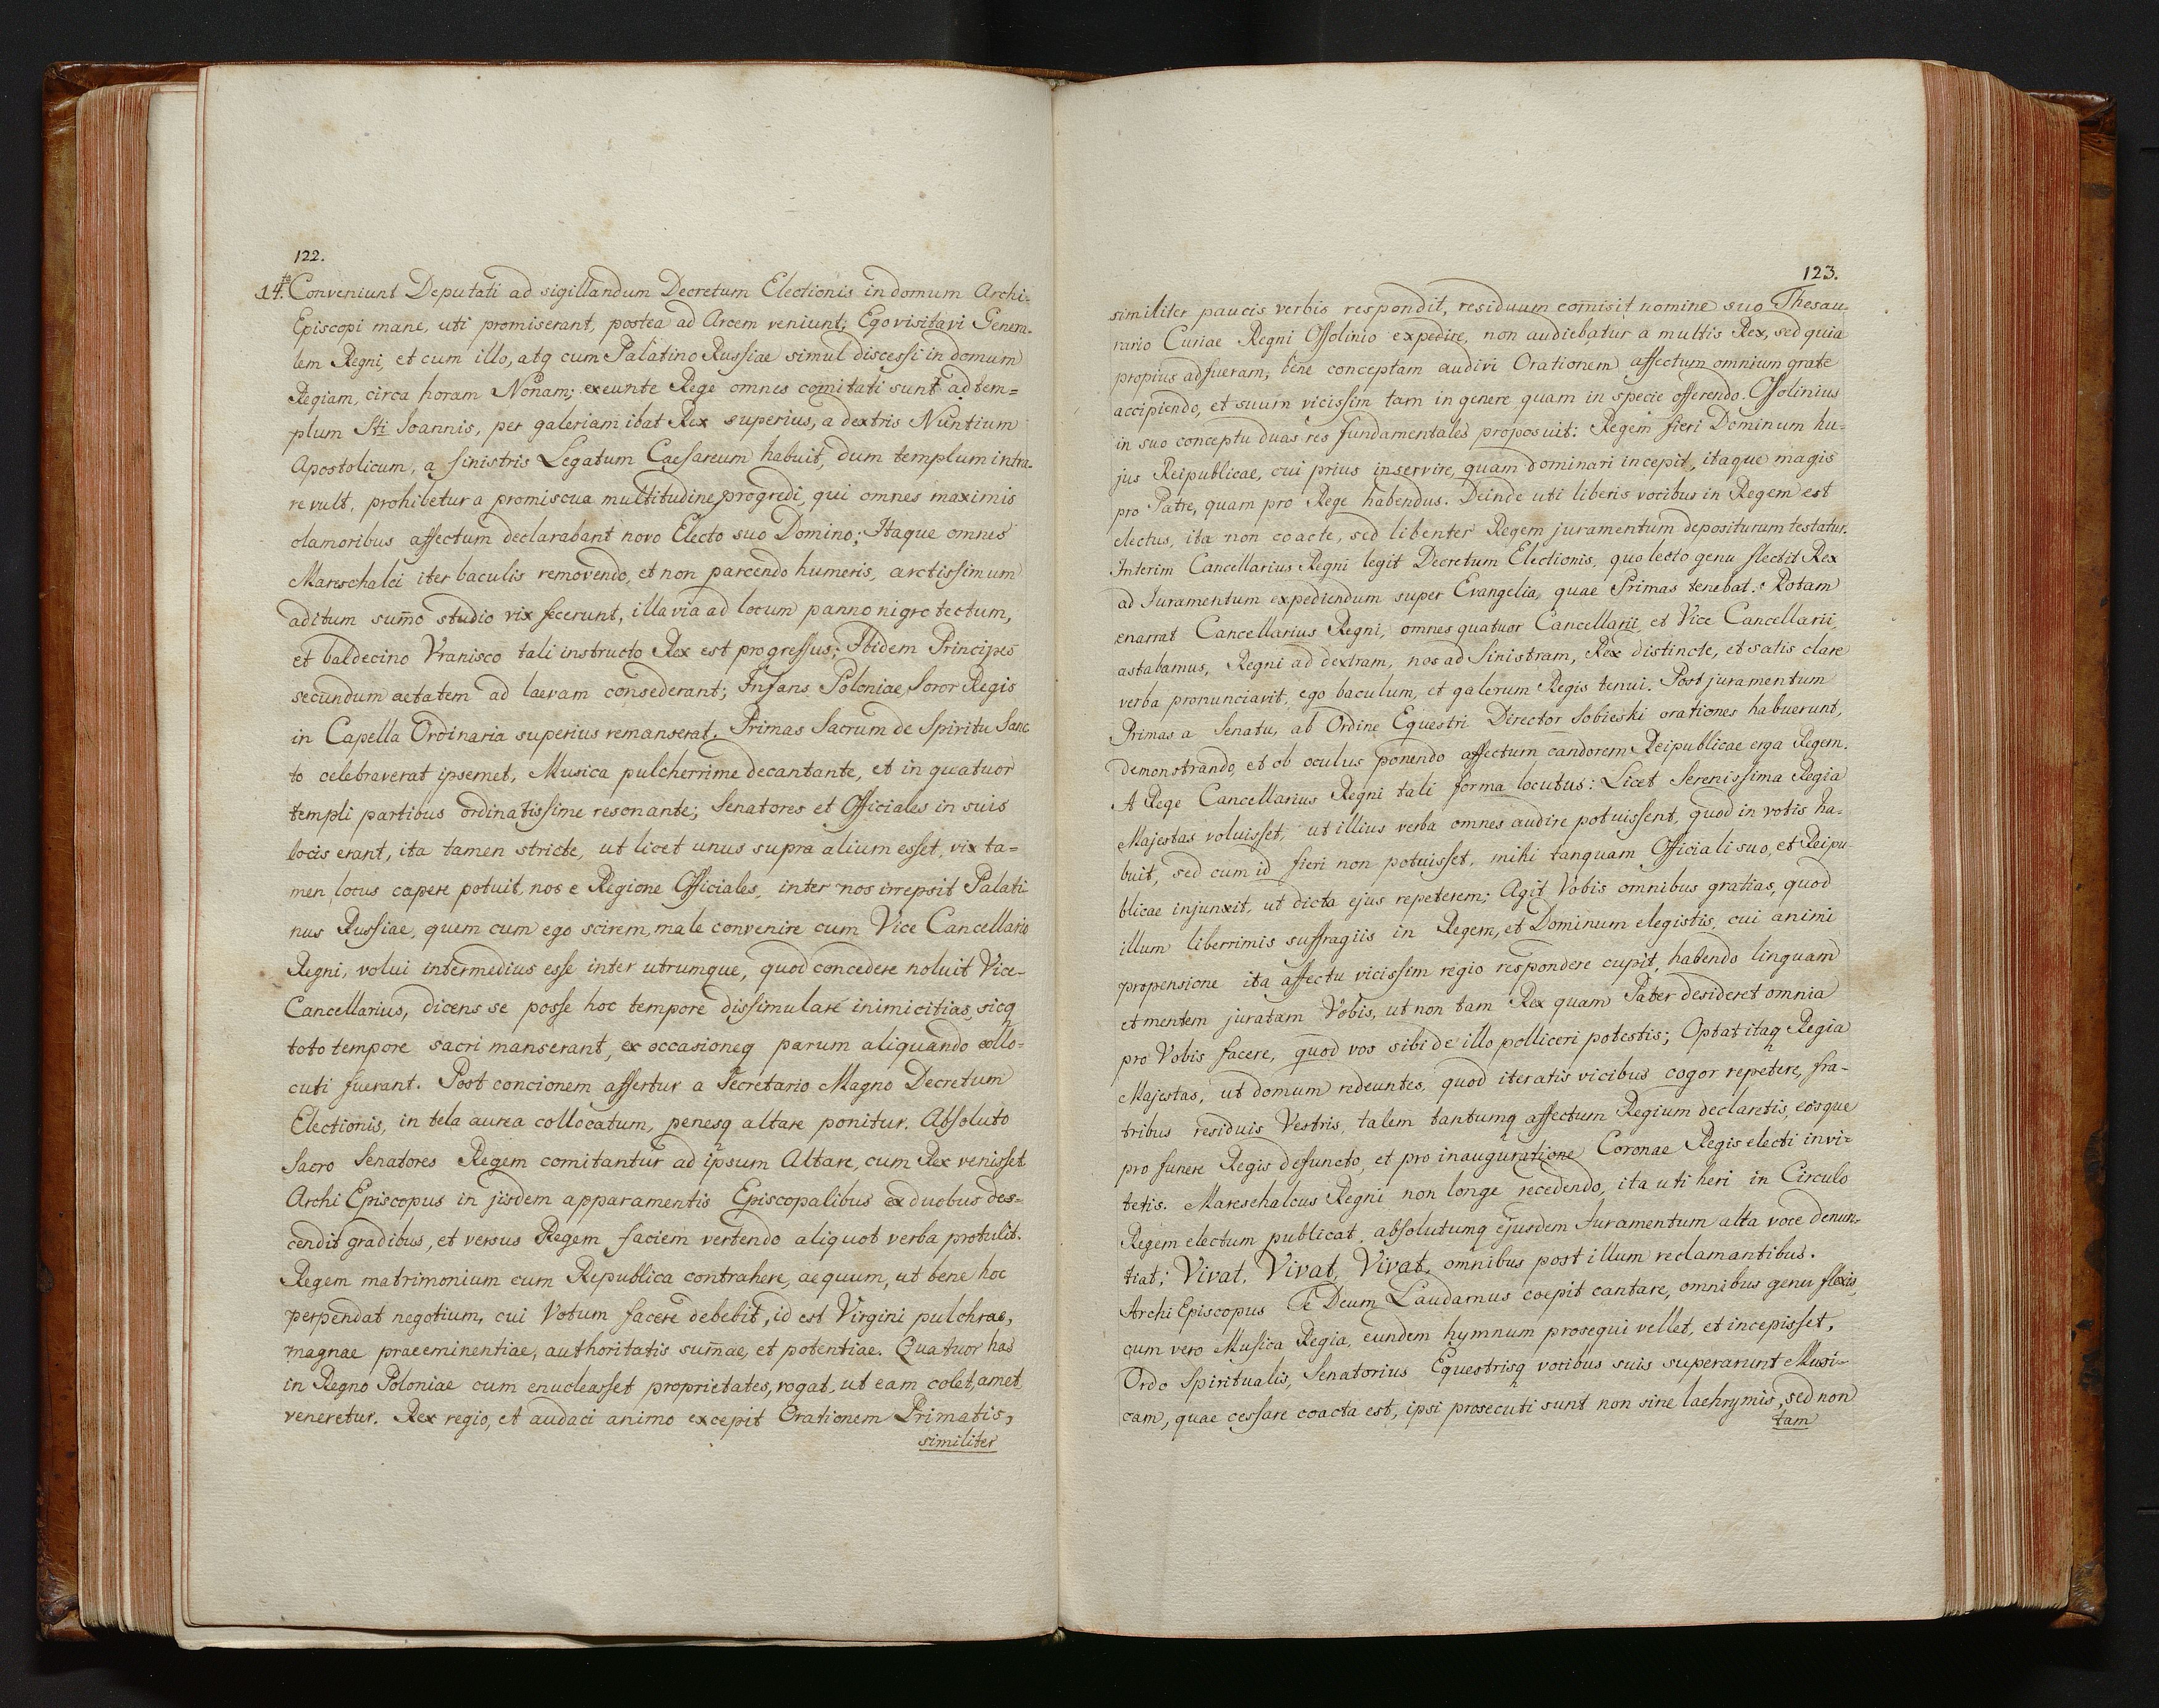 122.
14.ta Conveniunt Deputati ad sigillandum Decretum Electionis in domum Archi-
Episcopi mane, uti promiserant, postea ad Arcem veniunt; Ego visitavi Genera-
lem Regni, et cum illo, atq cum Palatino Russiae simul discessi in domum
Regiam, circa horam Nonam; exeunte Rege omnes comitati sunt ad tem=
plum Sti Ioannis, per galeriam ibat Rex superius, a dextris Nuntium
Apostolicum, a sinistris Legatum Caesareum habuit, dum templum intra-
re vult, prohibetur a promiscua multitudine progredi, qui omnes maximis
clamoribus affectum declarabant novo Electo suo Domino; Itaque omnes
Mareschalci iter baculis removendo, et non parcendo humeris, arctissimum
aditum sum̄o studio vix fecerunt, illa via ad locum panno nigro tectum,
et baldecino Vranisco tali instructo Rex est progressus; Ibidem Principes
secundum aetatem ad laevam consederant; Infans Poloniae Soror Regis
in Capella Ordinaria superius remanserat. Primas Sacrum de Spiritu Sanc
to celebraverat ipsemet, Musica pulcherrime decantante, et in quatuor
templi partibus ordinatissime resonante; Senatores et Officiales in suis
locis erant, ita tamen stricte, ut licet unus supra alium esset, vix ta=
men locus capere potuit, nos e Regione Officiales, inter nos irrepsit Palati-
nus Russiae, quem cum ego scirem, male convenire cum Vice Cancellario
Regni, volui intermedius esse inter utrumque, quod concedere noluit Vice-
Cancellarius, dicens se posse hoc tempore dissimulare inimicitias, sicq
toto tempore sacri manserant, ex occasioneq parum aliquando collo=
cuti fuerant. Post concionem affertur a Secretario Magno Decretum
Electionis, in tela aurea collocatum, penesq altare ponitur. Absoluto
Sacro Senatores Regem comitantur ad ipsum Altare, cum Rex venisset
Archi Episcopus in jisdem apparamentis Episcopalibus ex duobus des=
cendit gradibus, et versus Regem faciem vertendo aliquot verba protulit.
Regem matrimonium cum Republica contrahere, aequum, ut bene hoc
perpendat negotium, cui Votum facere debebit, id est Virgini pulchrae,
magnae praeeminentiae, authoritatis sum̄ae, et potentiae. Quatuor has
in Regno Poloniae cum enucleasset proprietates, rogat, ut eam colet, amet
veneretur. Rex regio, et audaci animo excepit Orationem Primatis,
similiter
123.
similiter paucis verbis respondit, residuum com̄isit nomine suo Thesau
rario Curiae Regni Ossolinio expedire, non audiebatur a multis Rex, sed quia
propius adfueram, bene conceptam audivi Orationem affectum omnium grate
accipiendo, et suum vicissim tam in genere quam in specie offerendo. Ossolinius
in suo conceptu duas res fundamentales proposuit: Regem fieri Dominum hu-
jus Reipublicae, cui prius inservire, quam dominari incepit, itaque magis
pro Patre, quam pro Rege habendus. Deinde uti liberis vocibus in Regem est
electus, ita non coacte, sed libenter Regem juramentum depositurum testatur.
Interim Cancellarius Regni legit Decretum Electionis, quo lecto genu flectit Rex
ad Iuramentum expediendum super Evangelia, quae Primas tenebat. Rotam
enarrat Cancellarius Regni, omnes quatuor Cancellarii, et Vice Cancellarii,
astabamus, Regni ad dextram, nos ad Sinistram, Rex distincte, et satis clare
verba pronunciavit, ego baculum, et galerum Regis tenui. Post juramentum
Primas a Senatu, ab Ordine Equestri Director Sobieski orationes habuerunt,
demonstrando, et ob oculus ponendo affectum candorem Reipublicae erga Regem.
A Rege Cancellarius Regni tali forma locutus: Licet Serenissima Regia
Majestas voluisset, ut illius verba omnes audire potuissent, quod in votis ha-
buit, sed cum id fieri non potuisset, mihi tanquam Officiali suo, et Reipu-
blicae injunxit, ut dicta ejus repeterem; Agit Vobis omnibus gratias, quod
illum liberrimis suffragiis in Regem, et Dominum elegistis, cui animi
propensione ita affectu vicissim regio respondere cupit, habendo linguam
et mentem juratam Vobis, ut non tam Rex quam Pater desideret omnia
pro Vobis facere, quod vos sibi de illo polliceri potestis; Optat itaq Regia
Majestas, ut domum redeuntes, quod iteratis vicibus cogor repetere, fra-
tribus residuis Vestris, talem tantumq affectum Regium declaretis, eosque
pro funere Regis defuncto, et pro inauguratione Coronae Regis electi invi=
tetis. Mareschalcus Regni non longe recedendo, ita uti heri in Circulo
Regem electum publicat, absolutumq ejusdem Iuramentum alta voce denun-
tiat; Vivat, Vivat, Vivat, omnibus post illum reclamantibus.
Archi Episcopus Te Deum Laudamus coepit cantare, omnibus genu flexis,
cum vero Musica Regia, eundem hymnum prosequi vellet, et incepisset,
Ordo Spiritualis, Senatorius Equestrisq vocibus suis superarunt Musi=
cam, quae cessare coacta est, ipsi prosecuti sunt non sine lachrymis, sed non
tam